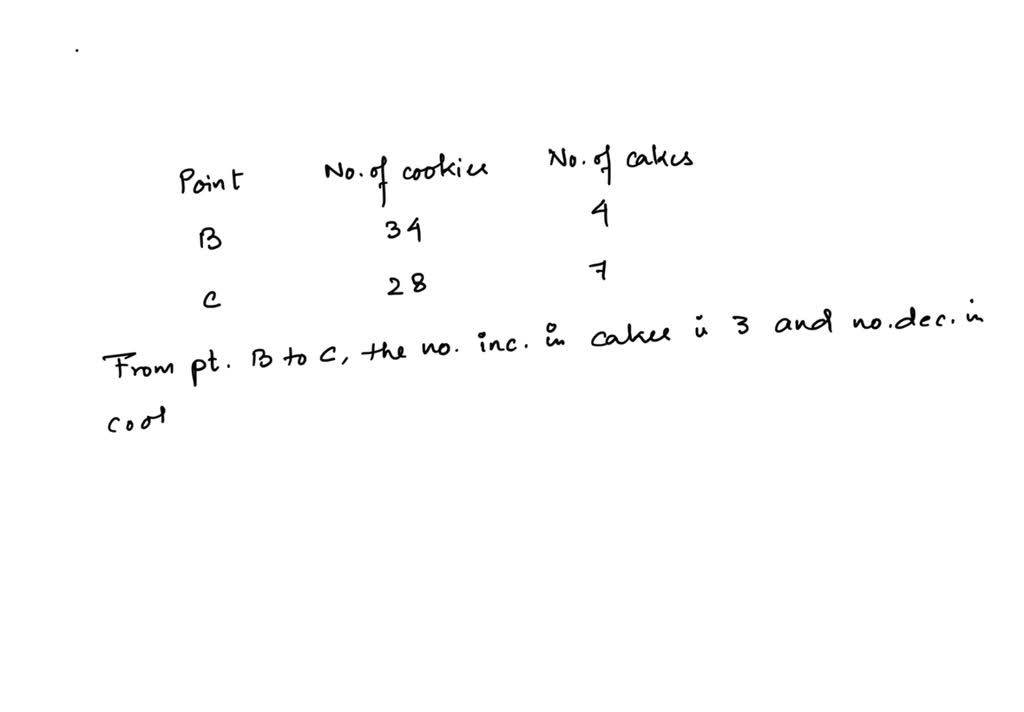 Point No. of cookies No. of cakes
B 34 4
C 28 7
From pt. B to C, the no. inc. in cakes is 3 and no. dec. in
cook